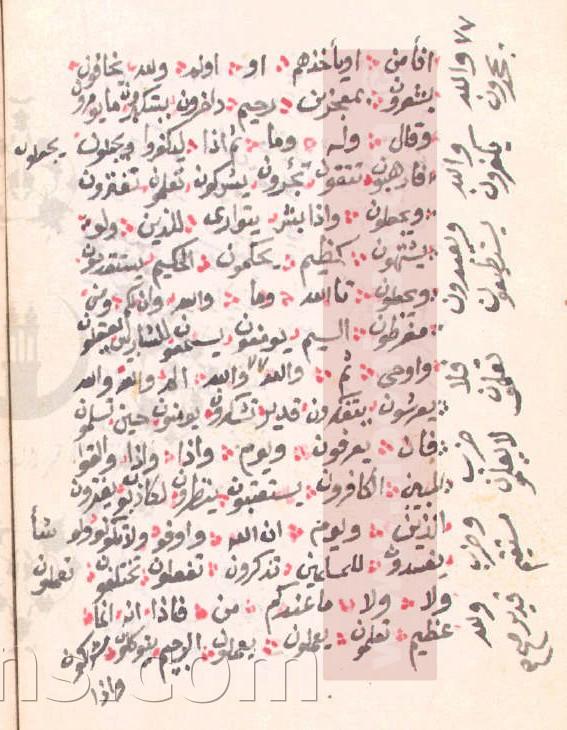 افأمن او يأخذهم او اولم ولله يخافون
يشعرون بمعجزين رحيم داخرون يستكبرون مايؤمرون
وقال وله وما ثم اذا ليكفروا ويجعلون
يجعلون
فارهبون تتقون تجأرون يشركون تعلمون تفترون
ويجعلون واذا بشر يتوارى للذين ولو
يشتهون كظيم يحكمون الحكيم يستقدمون
ويجعلون تالله وما والله وان لكم ومن
مفرطون اليم يؤمنون يسمعون للشاربين يعقلون
واوحى ثم والله ٧٧ والله الم والله والله
يعرشون يتفكرون قدير تشكرون يؤمنون حين تسلمون
فان يعرفون ويوم واذا واذا والقوا
المبين الكافرون يستعتبون ينظرون لكاذبون يفترون
الذين ويوم ان الله واوفو ولاتكونو ولو شأ
يفسدون للمسلمين تذكرون تفعلون تختلفون تعلمون
ولا ولا ماعندكم من فاذا انه انما
عظيم تعلمون يعملون يعملون الرجيم يتوكلون
واذا
٧٧ والله
يجحدون
والله
يكفرون
ويعبدون
يستطيعون
فلا
تعلمون
ضرب
لايعلمون
وضرب
مستقيم
ولله
قدير صح صح
ns.com